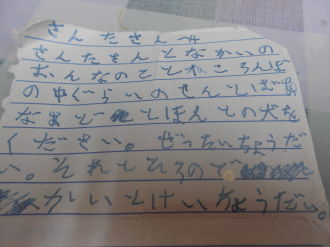 さんたさんへ
さんたさんとなかいの
おんなのことねころんば
の中ぐらいのさんとば
なまど とほんとの犬を
ください。ぜったいちょうだ
い。それとそらので
かいとけいちょうだい。